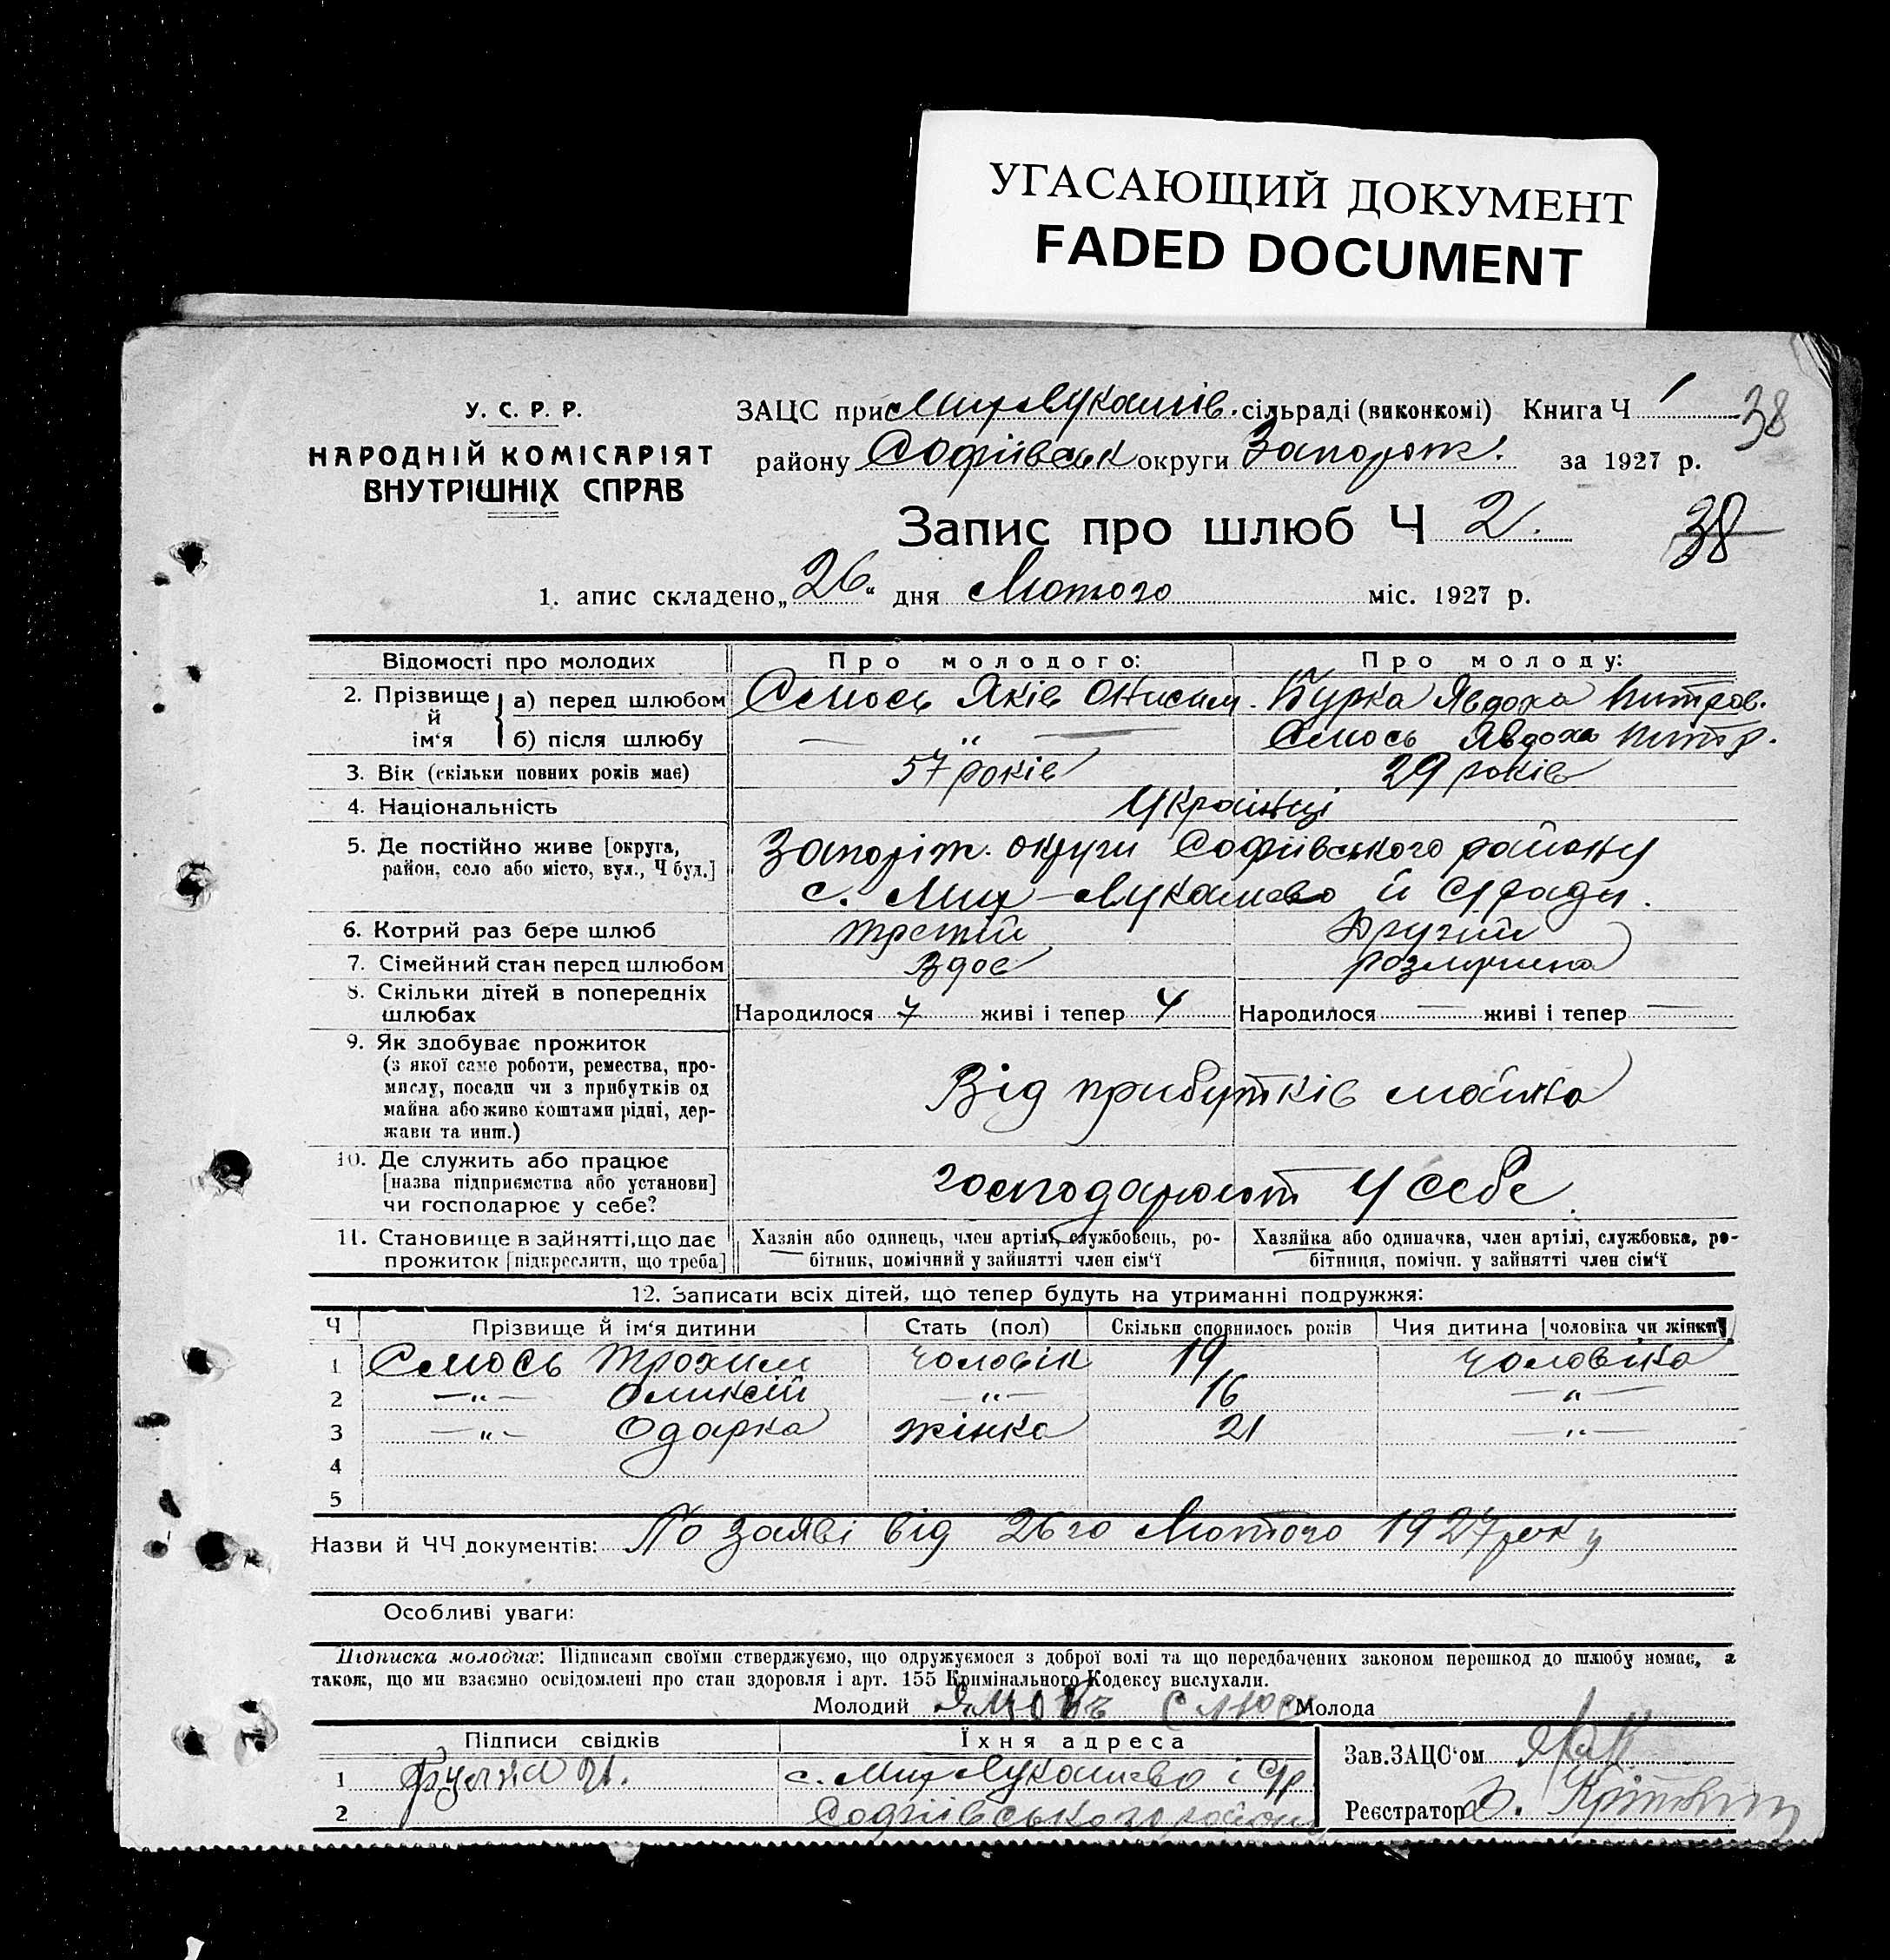 УГАСАЮЩИЙ ДОКУМЕНТ
FADED DOCUMENT
У. С. Р. Р.
НАРОДНІЙ КОМІСАРІЯТ
ВНУТРІШНІХ СПРАВ
ЗАЦС при с. Мих Лукашів. сільраді (виконкомі) Книга Ч 1
38
району Софіївськ округи Запорож. за 1927 р.
Запис про шлюб Ч 2.
38
1. апис складено „26“ дня Лютого міс. 1927 р.
Відомості про молодих Про молодого: Про молоду:
2. Прізвище й ім‘я а) перед шлюбом Слюсь Яків Онисим. Бурка Явдоха Митров.
б) після шлюбу — „ — Слюсь Явдоха Митр.
3. Вік (скільки повних років має) 57 років 29 років
4. Національність Українці
5. Де постійно живе [округа, район, село або місто, вул., Ч буд.] Запоріж. округи Софіївського району
с. Мих-Лукашево й сради.
6. Котрий раз бере шлюб третій Другий
7. Сімейний стан перед шлюбом вдов розлучена
8. Скільки дітей в попередніх шлюбах Народилося 7 живі і тепер 4 Народилося — живі і тепер —
9. Як здобуває прожиток
(з якої саме роботи, ремества, про-
мислу, посади чи з прибутків од
майна або живе коштами рідні, дер-
жави та инш.)
Від прибутків майна
10. Де служить або працює
[назва підприємства або установи]
чи господарює у себе?
господарюют у себе.
11. Становище в зайнятті, що дає
прожиток [підкреслити, що треба]
Хазяїн або одинець, член артілі, службовець, ро-
бітник, помічний у зайнятті член сім‘ї
Хазяйка або одиначка, член артілі, службовка, ро-
бітниця, помічн. у зайнятті член сім‘ї
12. Записати всіх дітей, що тепер будуть на утриманні подружжя:
Ч Прізвище й ім‘я дитини Стать (пол) Скільки сповнилось років Чия дитина [чоловіка чи жінки]
1 Слюсь Трохим чоловік 19 чоловіка
2 — „ — Оликсій — „ — 16 — „ —
3 — „ — Одарка жінка 21 — „ —
4
5
Назви й ЧЧ документів: По заяві від 26го Лютого 1927 року
Особливі уваги:
Підписка молодих: Підписами своїми стверджуємо, що одружуємося з доброї волі та що передбачених законом перешкод до шлюбу немає, а
також, що ми взаємно освідомлені про стан здоровля і арт. 155 Кримінального Кодексу вислухали.
Молодий Слюс Молода
Підписи свідків Їхня адреса Зав.ЗАЦС‘ом
1 с. Мих Лукашево і ср
2 Софіївського району Реєстратор